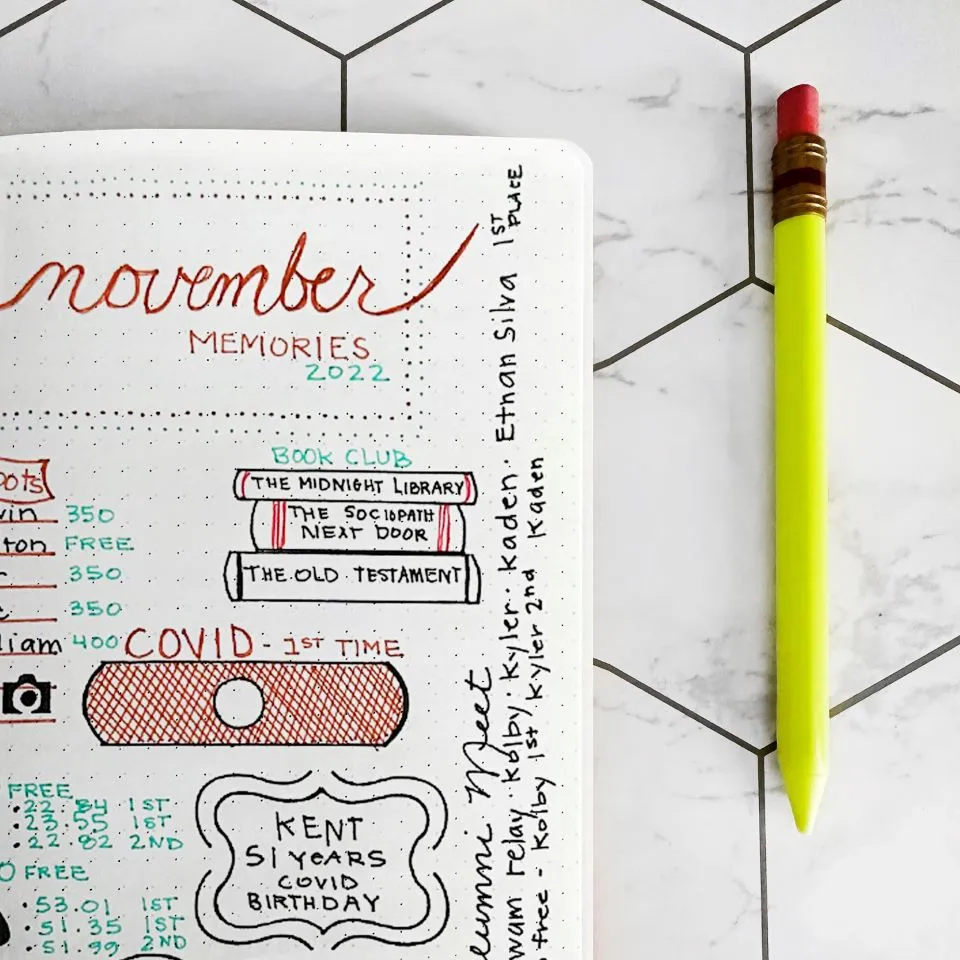 november
MEMORIES
2022
BOOK CLUB
THE MIDNIGHT LIBRARY
THE SOCIOPATH
NEXT DOOR
THE OLD TESTAMENT
350
ton FREE
350
350
liam 400
COVID - 1ST TIME
FREE
.22.84 1ST
.23.55 1ST
.22.82 2ND
0 FREE
.53.01 1ST
.51.35 1ST
.51.99 2ND
KENT
51 YEARS
COVID
BIRTHDAY
lumni Meet
wam relay. Kolby. Kyler. Kaden. Ethan Silva 1ST PLACE
free - Kolby 1st Kyler 2nd Kaden